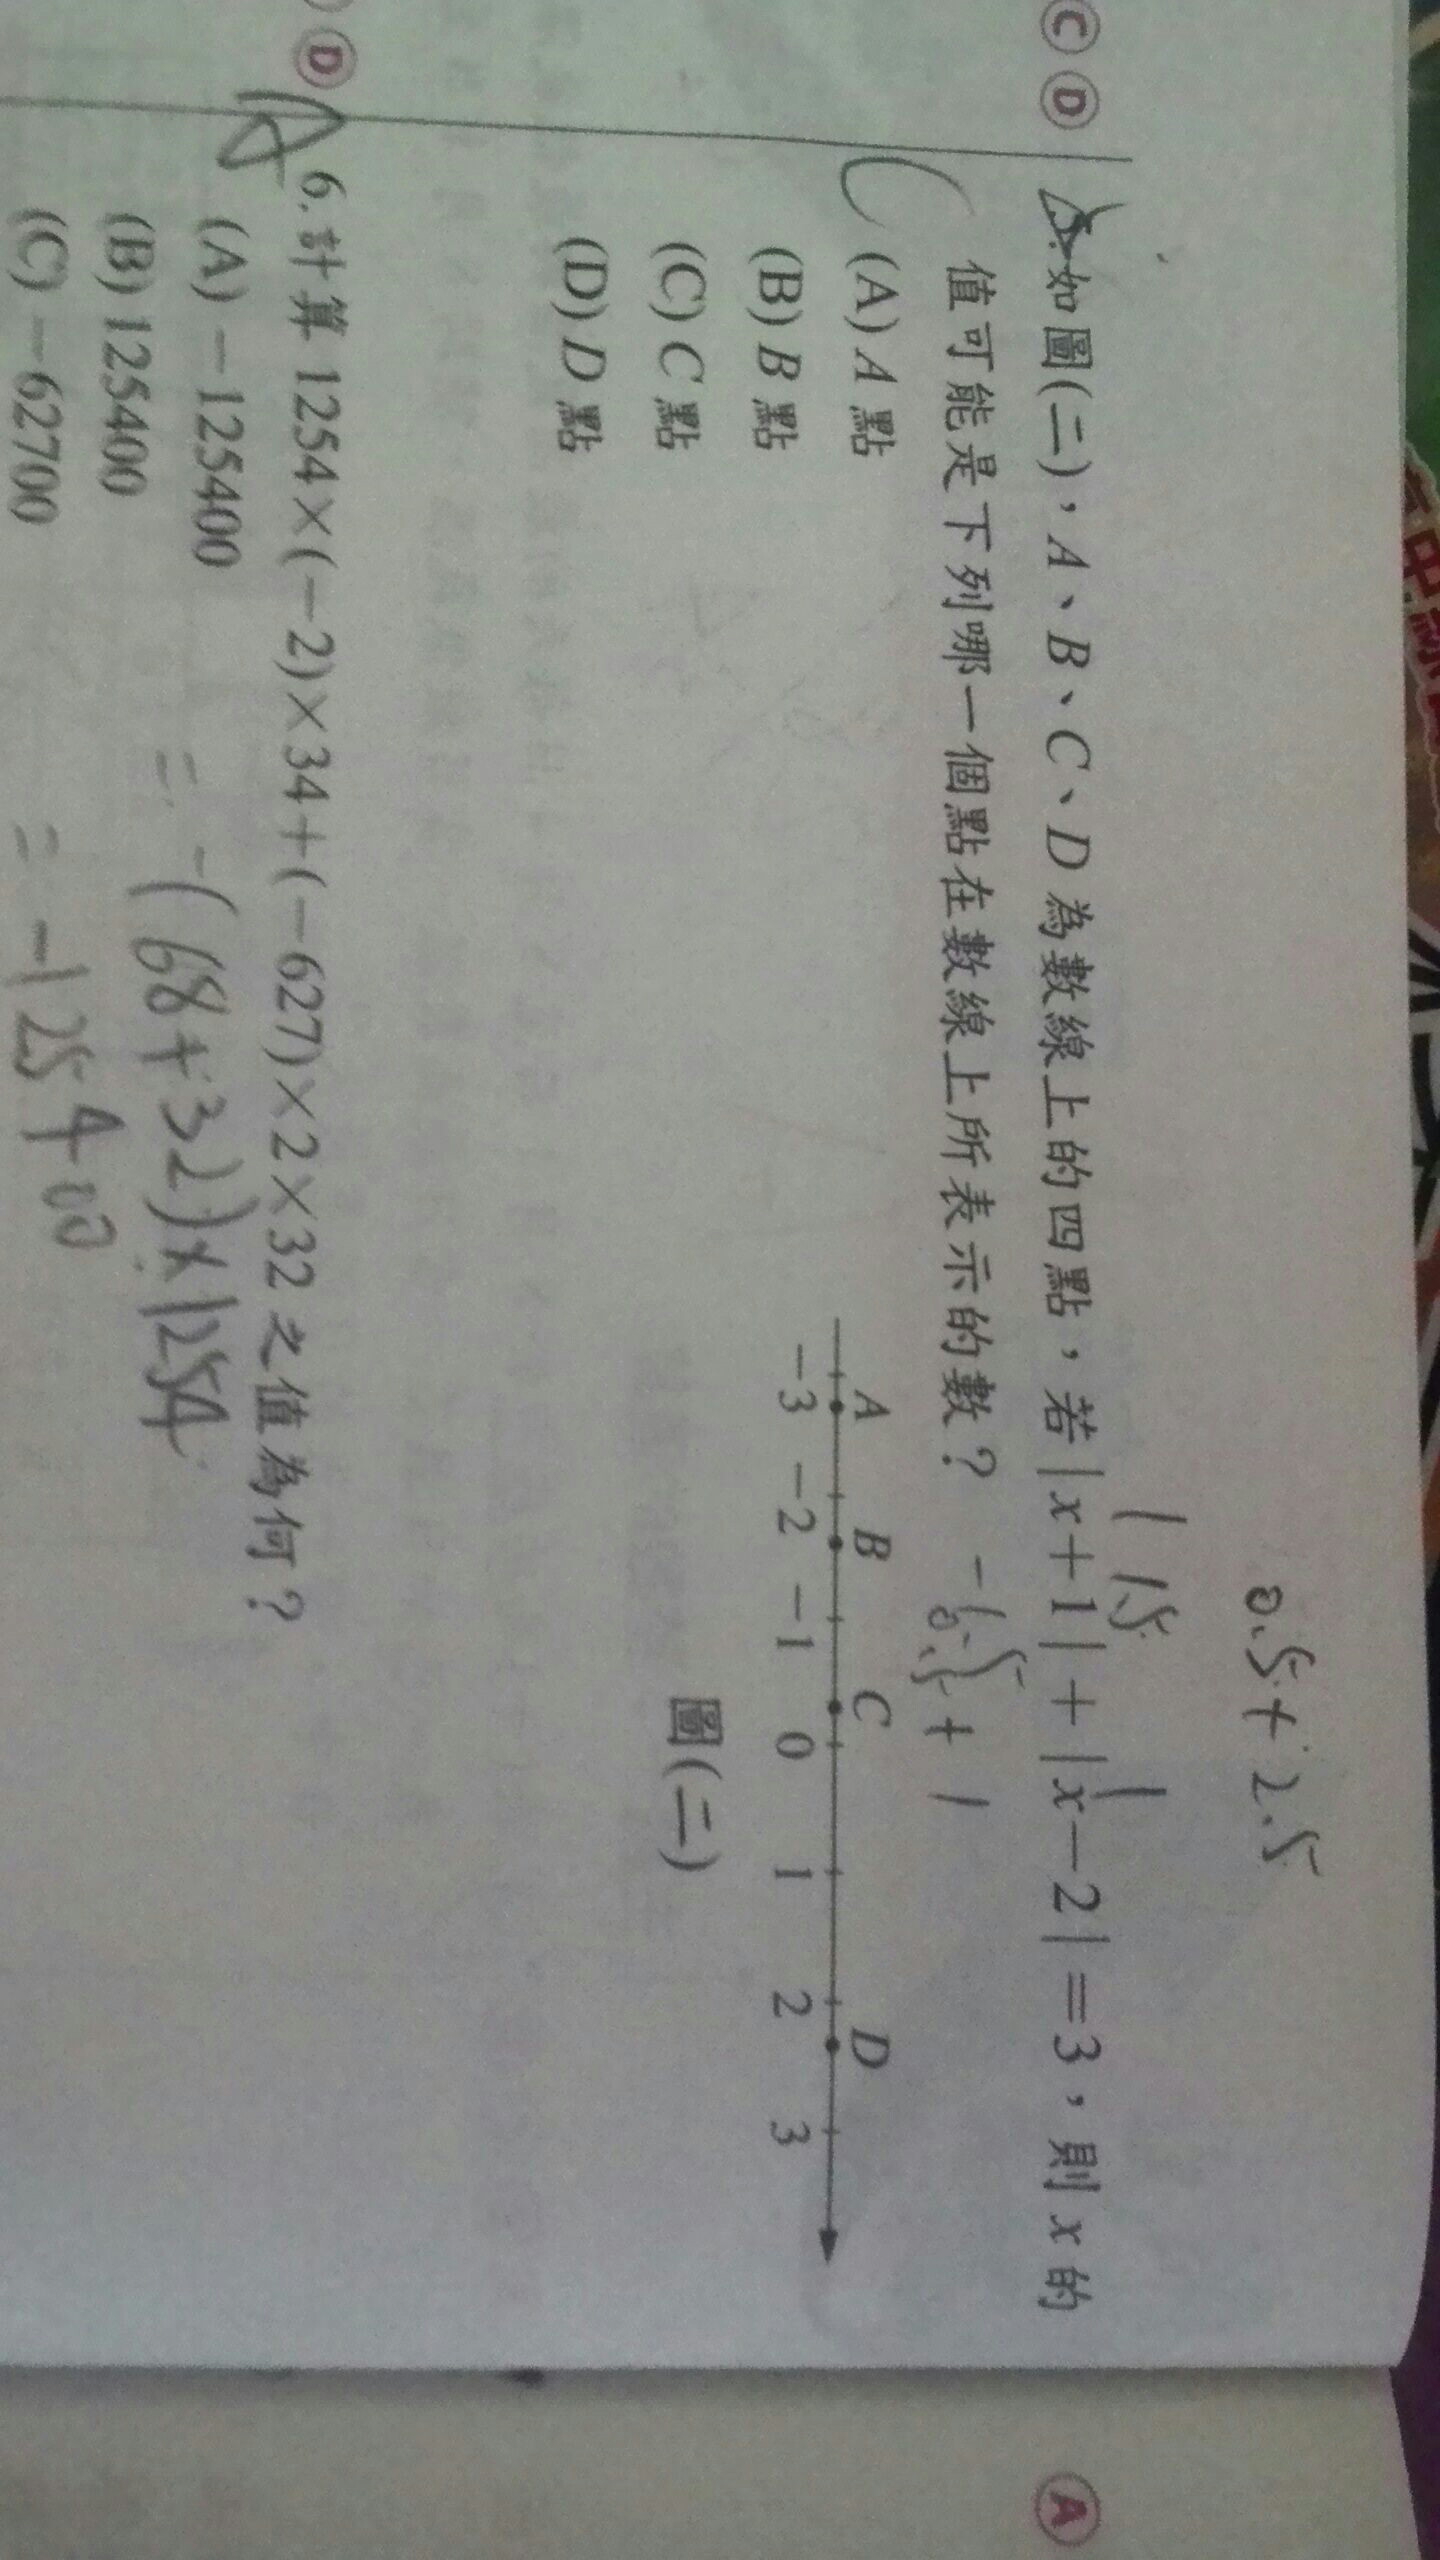 C D
0.5+2.5
1 1.5 1
5.如圖(二),A、B、C、D 為數線上的四點,若|x+1|+|x-2|=3,則 x 的
值可能是下列哪一個點在數線上所表示的數? -
0.5+1
C
(A) A 點
(B) B 點
(C) C 點
(D) D 點
A B C D
-3 -2 -1 0 1 2 3
圖(二)
D
A
6.計算 1254×(-2)×34+(-627)×2×32 之值為何?
(A) -125400
(B) 125400
(C) -62700
= -(68+32)×1254
= -125400
A